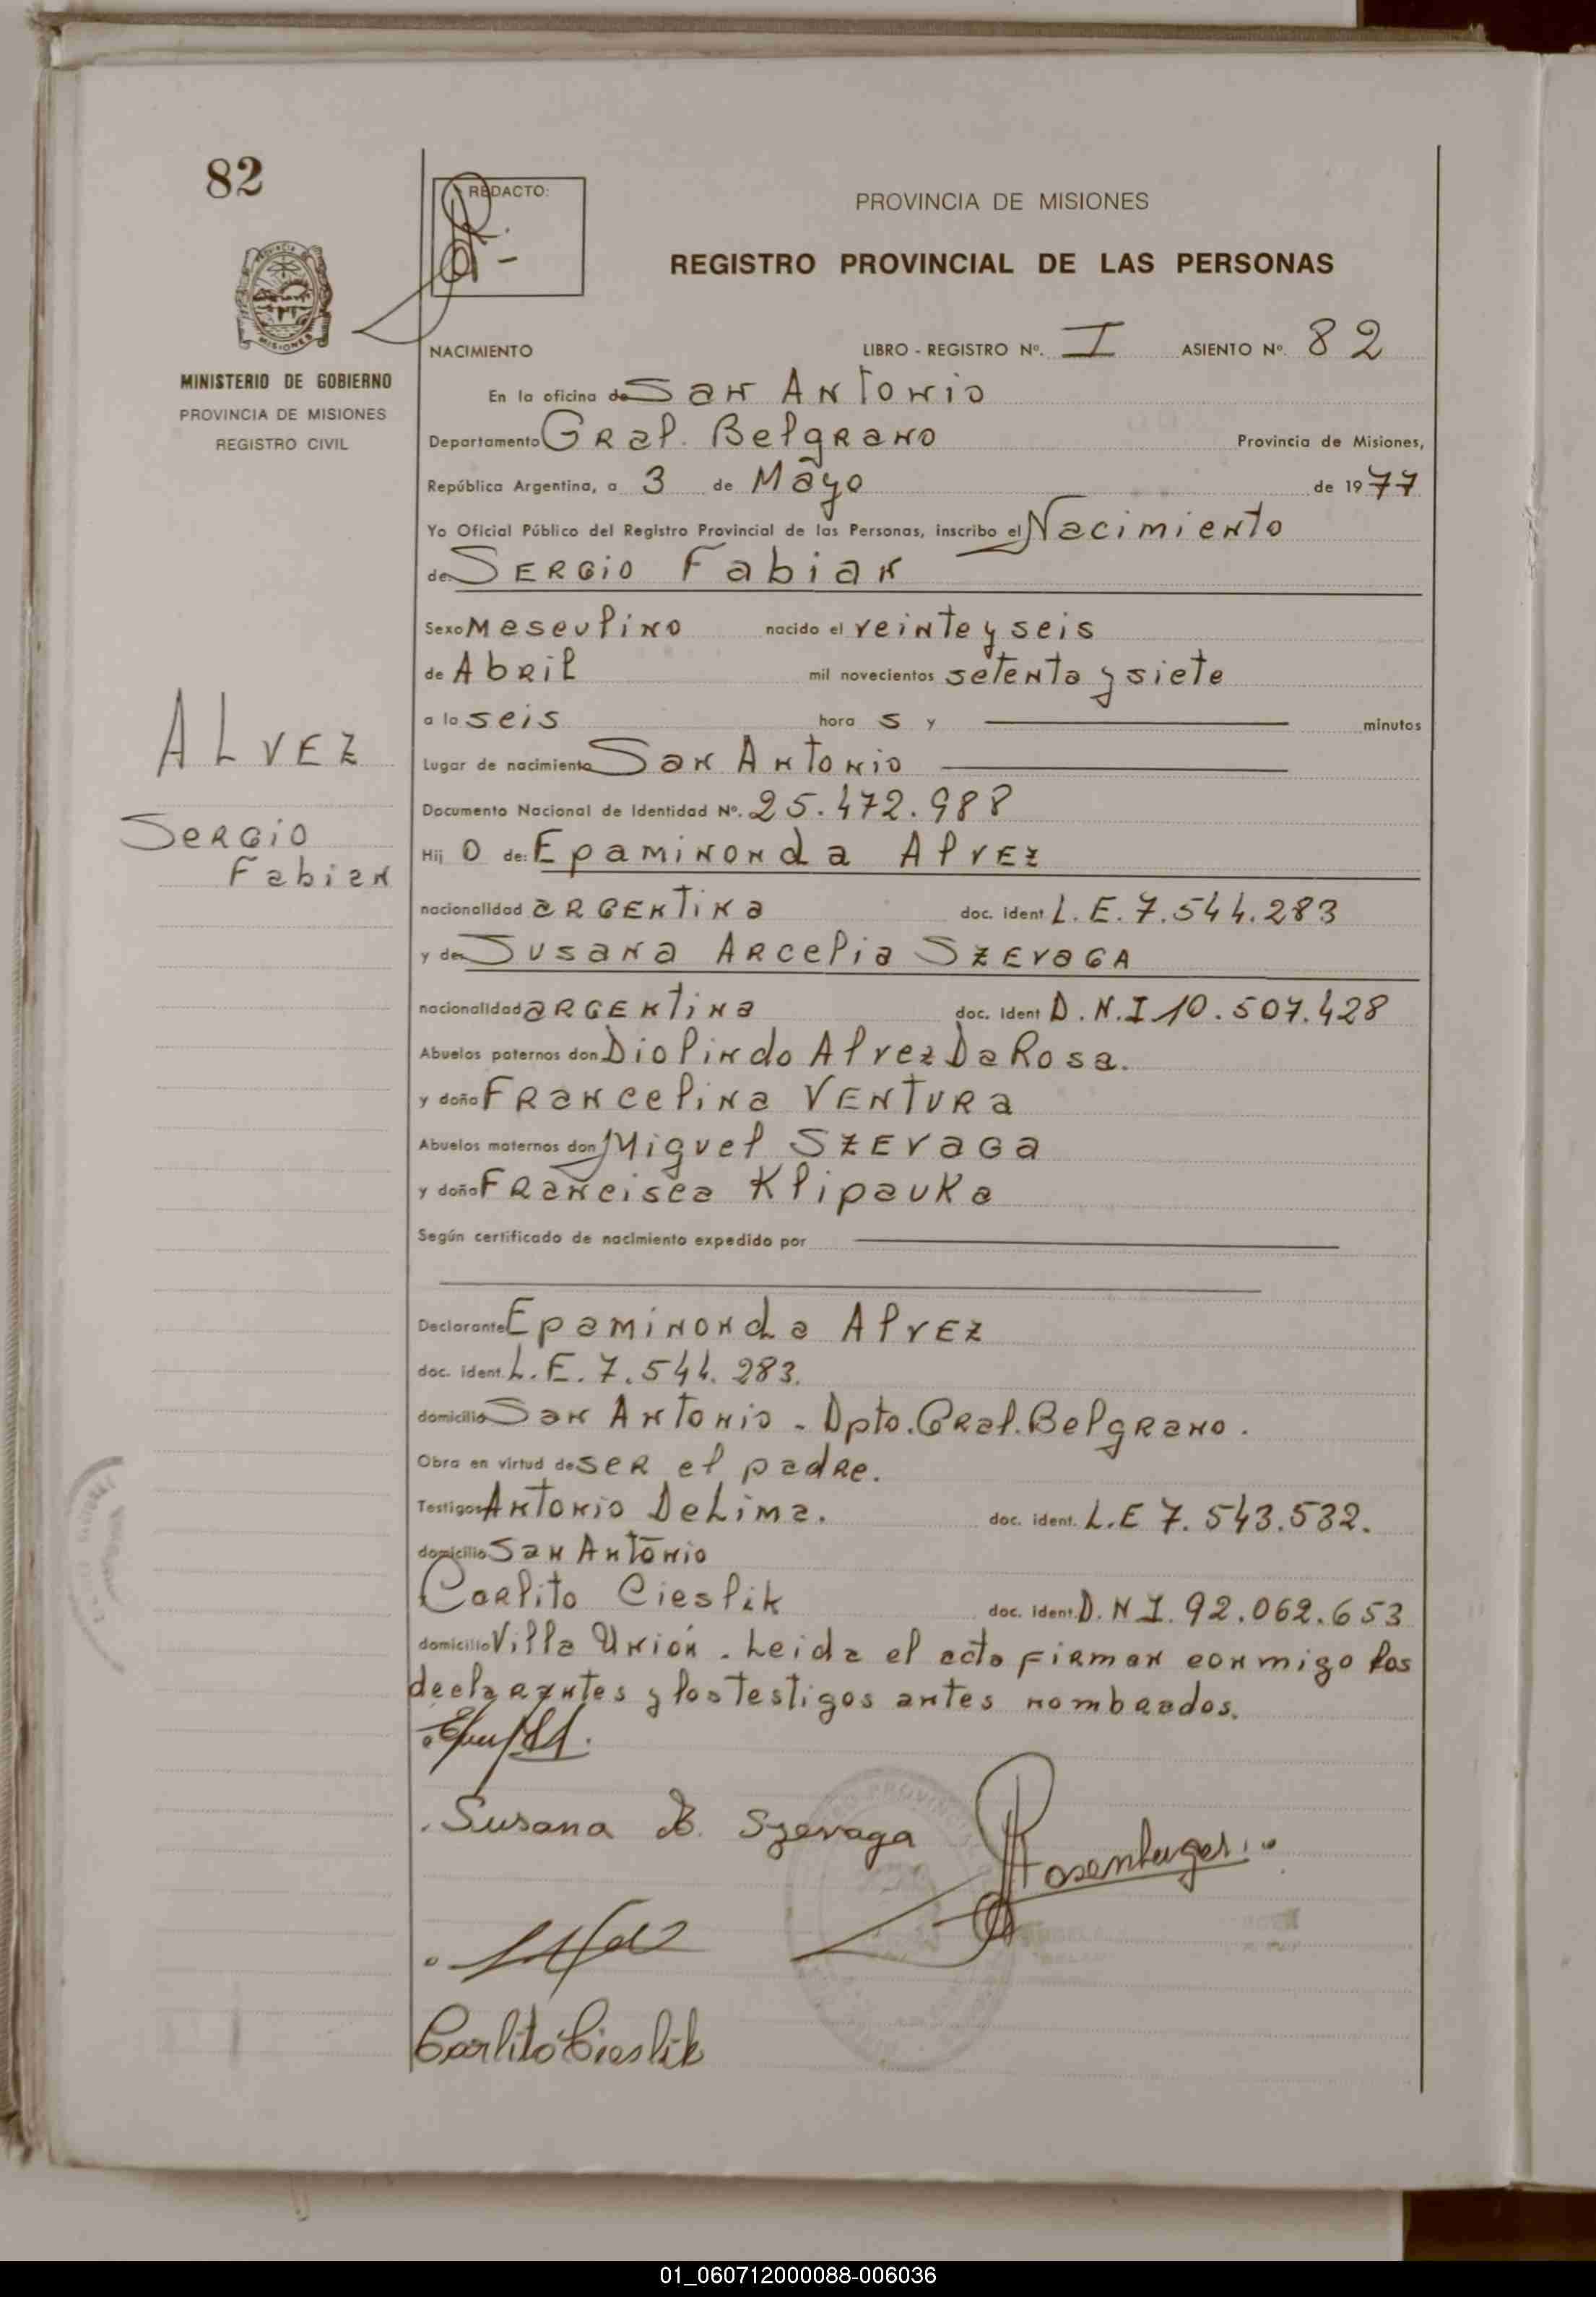 82
REDACTO:
PROVINCIA DE MISIONES
REGISTRO PROVINCIAL DE LAS PERSONAS
MISIONES
MINISTERIO DE GOBIERNO
PROVINCIA DE MISIONES
REGISTRO CIVIL
NACIMIENTO LIBRO - REGISTRO Nº. I ASIENTO Nº. 82
En la oficina de San Antonio
Departamento Gral. Belgrano Provincia de Misiones,
República Argentina, a 3 de Mayo de 1977
Yo Oficial Público del Registro Provincial de las Personas, inscribo el Nacimiento
de: Sergio Fabian
Sexo Masculino nacido el veinte y seis
de Abril mil novecientos setenta y siete
a la seis hora s y minutos
ALVEZ
Sergio
Fabian
Lugar de nacimiento San Antonio
Documento Nacional de Identidad Nº. 25.472.988
Hij o de: Epaminonda Alvez
nacionalidad argentina doc. ident L.E. 7.544.283
y de: Susana Arcelia Szevaga
nacionalidad argentina doc. ident D.N.I 10.507.428
Abuelos paternos don Diolindo Alvez Da Rosa.
y doña Francelina Ventura
Abuelos maternos don Miguel Szevaga
y doña Francisca Klipauka
Según certificado de nacimiento expedido por
Declarante Epaminonda Alvez
doc. ident. L.E. 7.544.283.
domicilio San Antonio - Dpto. Gral. Belgrano.
Obra en virtud de ser el padre.
Testigos Antonio De Lima. doc. ident. L.E 7.543.532.
domicilio San Antonio
Carlito Cieslik doc. ident. D.N I. 92.062.653
domicilio Villa Unión. Leida el acta firman conmigo los
declarantes y los testigos antes nombrados.
Susana A. Szevaga
Carlito Cieslik
01_060712000088-006036